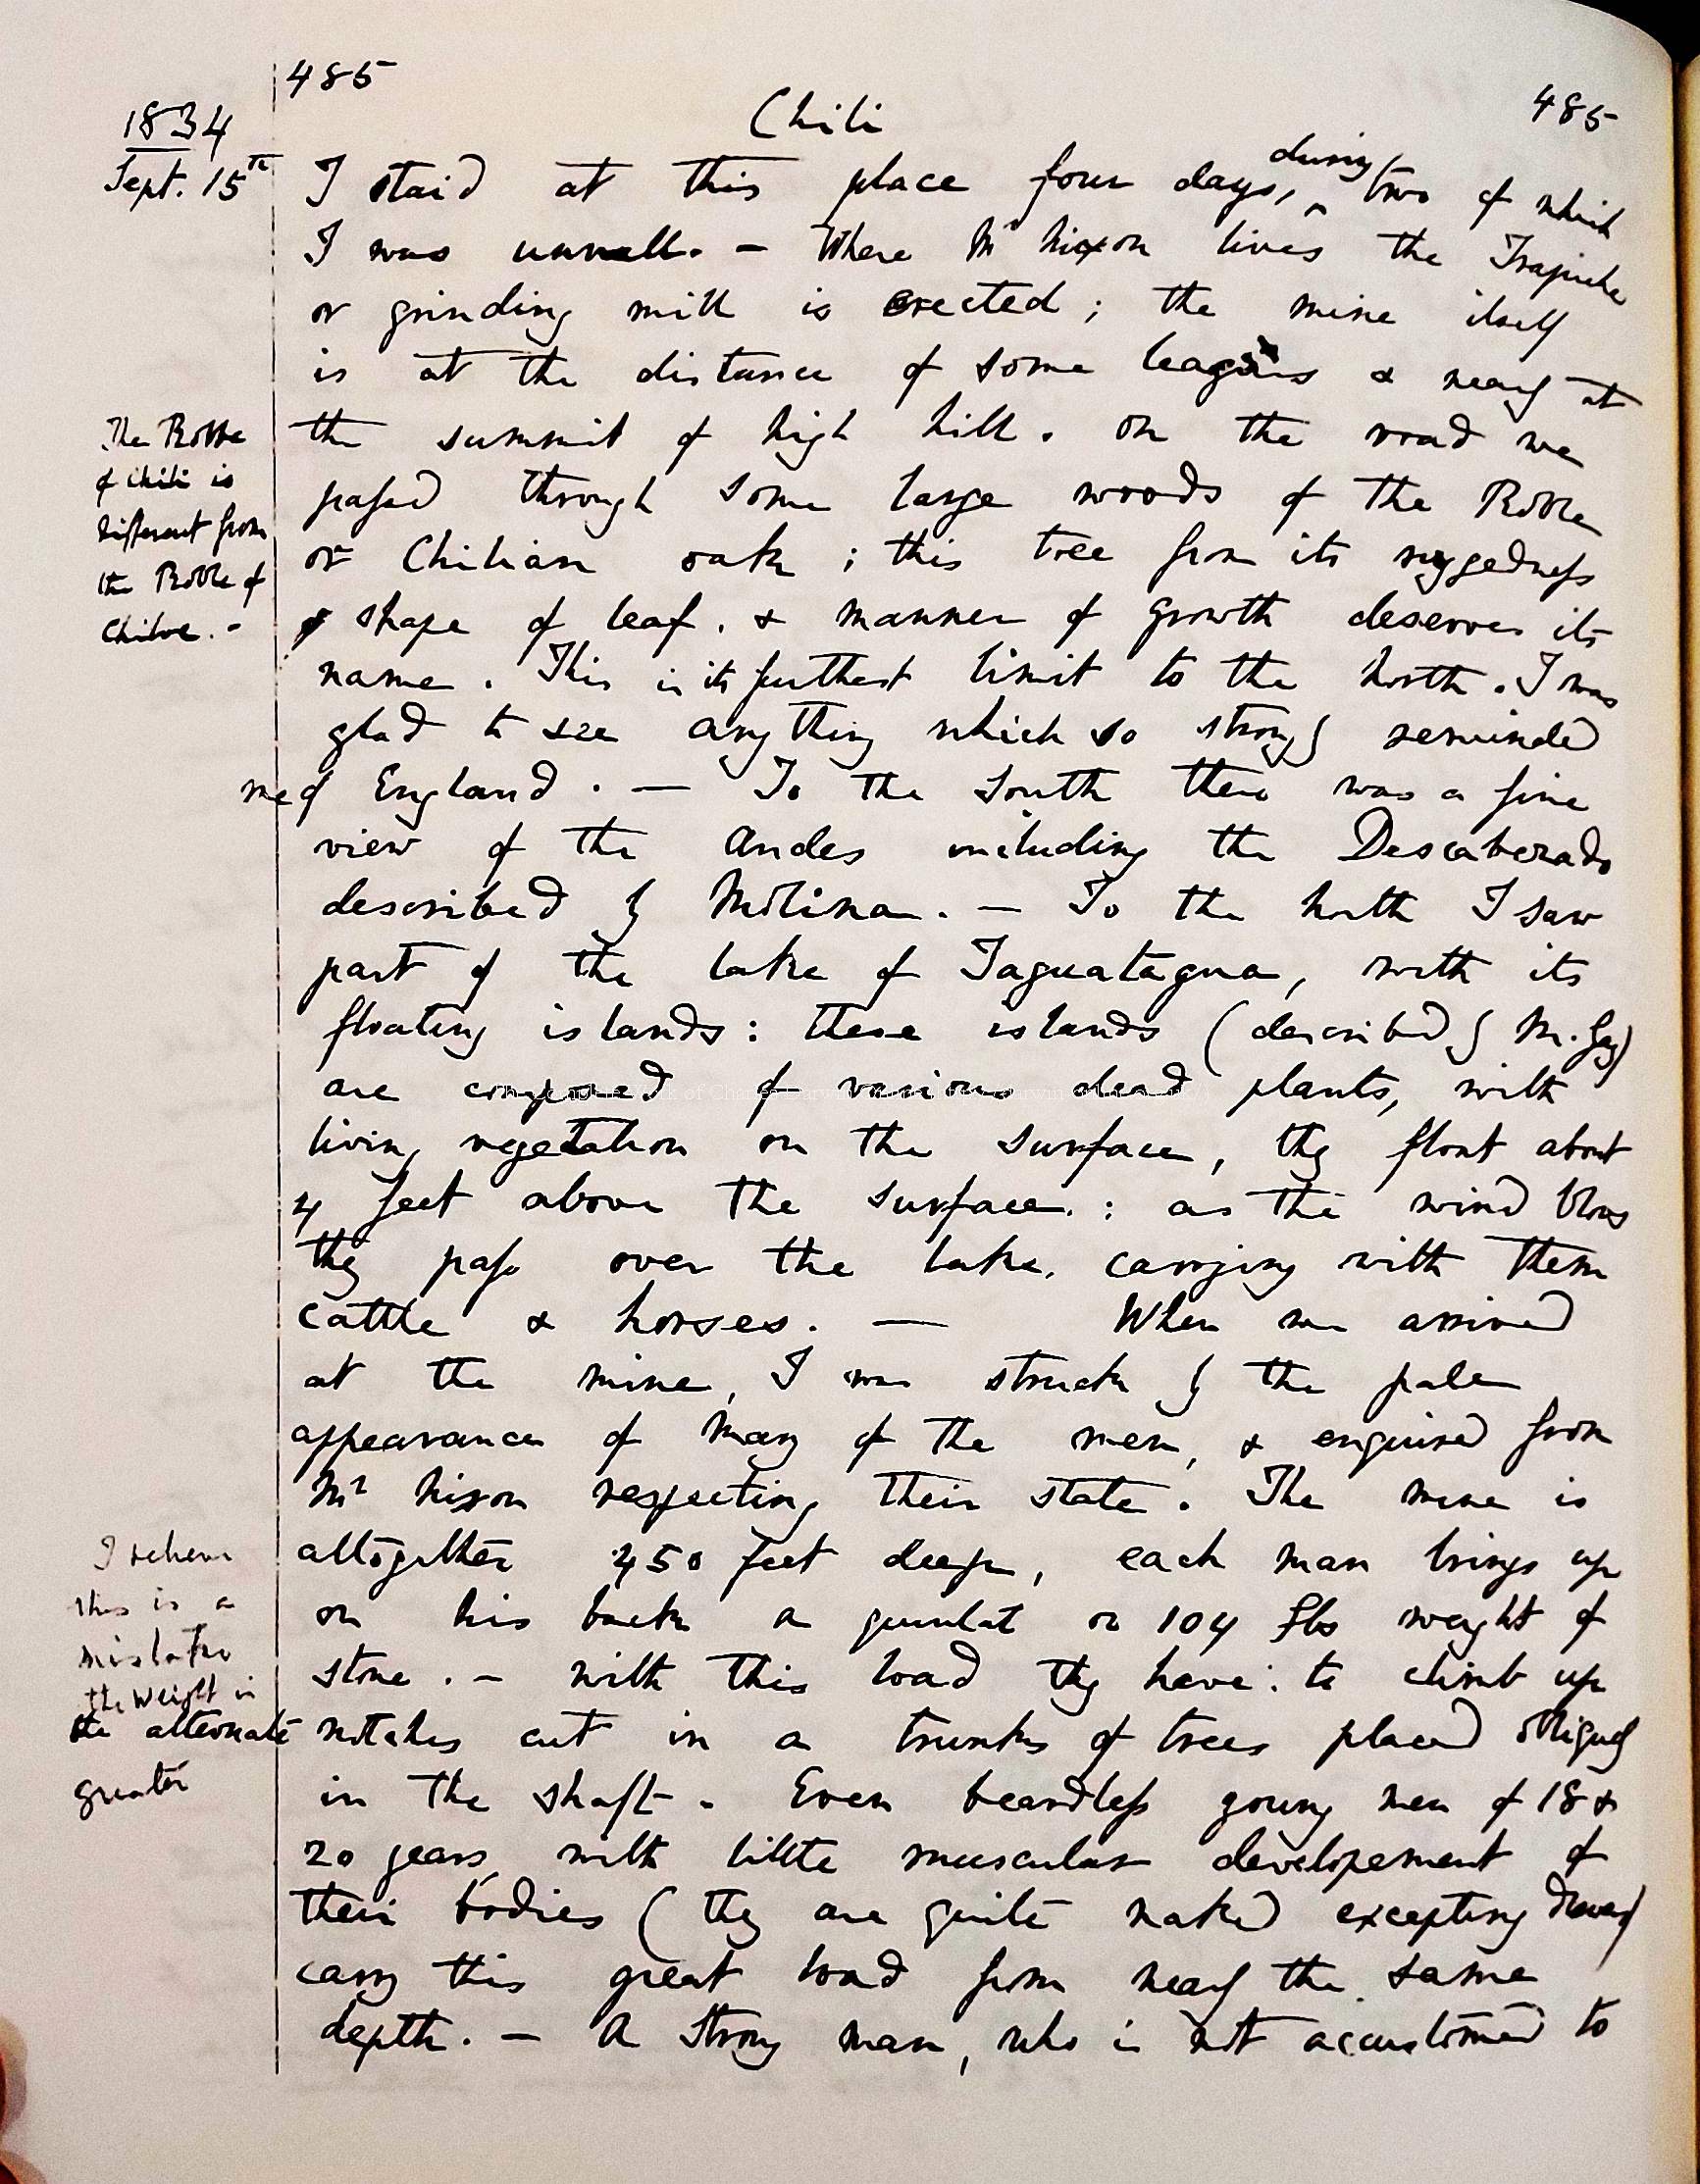 485
Chili
485
1834
Sept. 15th
I staid at this place four days, during two of which
I was unwell. — Where Mr Nixon lives the Trapiche
or grinding mill is erected; the mine itself
is at the distance of some leagues & nearly at
the summit of high hill. On the road we
passed through some large woods of the Roble
or Chilian oak; this tree from its ruggedness
& shape of leaf. & manner of growth deserves its
name. This is its furthest limit to the North. I was
glad to see anything which so strongly reminded
me of England. — To the South there was a fine
view of the Andes including the Descabezado
described by Molina. — To the North I saw
part of the lake of Taguatagua, with its
floating islands: these islands (described by M. Gay)
are composed of various dead plants, with
living vegetation on the surface, they float about
4 feet above the surface.: as the wind blows
they pass over the lake, carrying with them
cattle & horses. — When we arrived
at the mine, I was struck by the pale
appearance of many of the men, & enquired from
Mr Nixon respecting their state. The mine is
altogether 450 feet deep, each man brings up
on his back a quintal or 104 lbs weight of
stone. — With this load they have to climb up
the alternate notches cut in a trunks of trees placed obliquely
in the shaft. Even beardless young men of 18 &
20 years, with little muscular developement of
their bodies (they are quite naked excepting drawers)
carry this great load from nearly the same
depth. — A strong man, who is not accustomed to
The Roble
of Chili is
different from
the Roble of
Chiloe. -
I believe
this is a
mistake
the weight is
greater